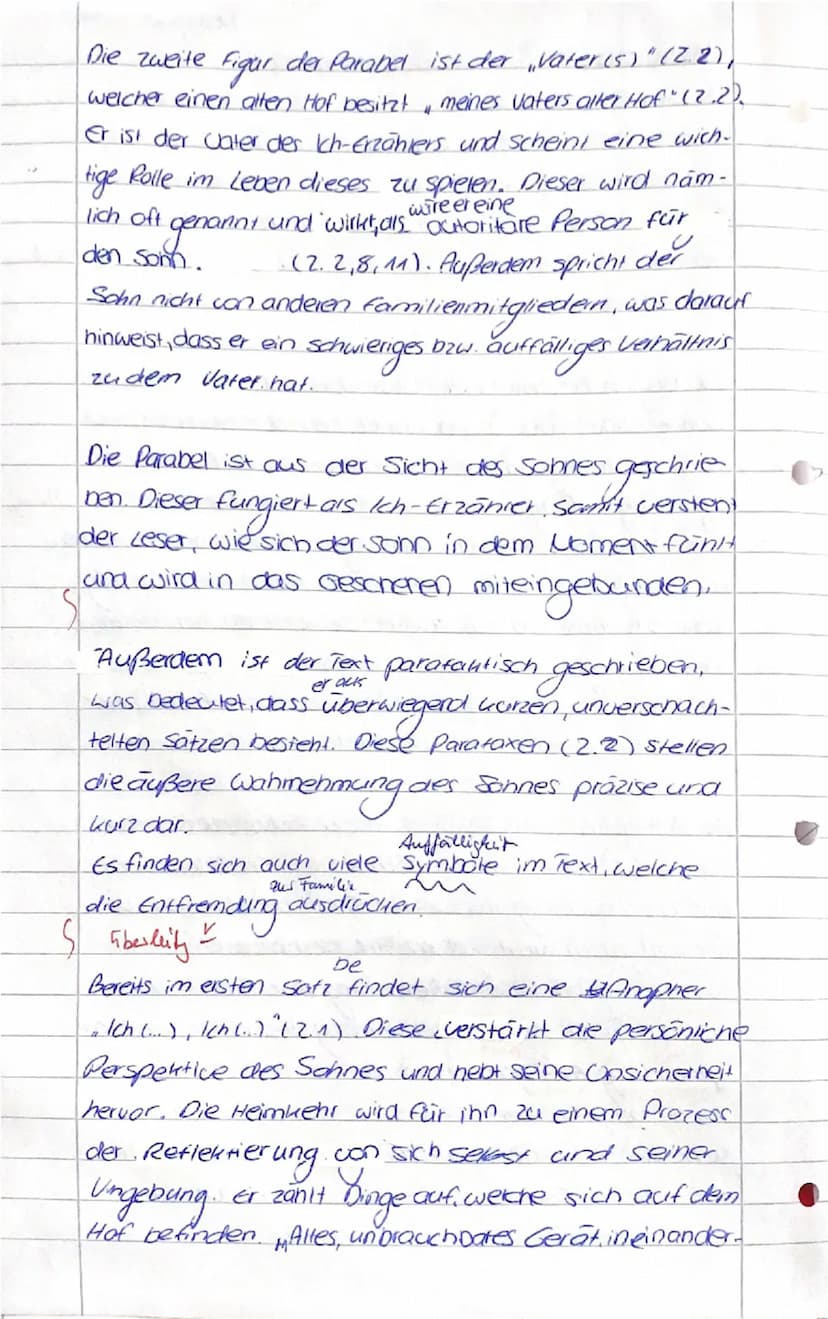 Die zweite Figur der Parabel ist der „Vater(s)" (Z.2),
welcher einen alten Hof besitzt „meines Vaters alter Hof" (Z.2).
Er ist der Vater des Ich-Erzählers und scheint eine wich-
tige Rolle im Leben dieses zu spielen. Dieser wird näm-
wäre er eine
lich oft genannt und wirkt, als autoritäre Person für
den Sohn. (Z. 2, 8, 11). Außerdem spricht der
Sohn nicht von anderen Familienmitgliedern, was darauf
hinweist, dass er ein schwieriges bzw. auffälliges Verhältnis
zu dem Vater hat.
Die Parabel ist aus der Sicht des Sohnes geschrie
ben. Dieser fungiert als Ich-Erzähler. Somit versteht
der Leser, wie sich der Sohn in dem Moment fühlt
und wird in das Geschehen miteingebunden.
Außerdem ist der Text parataktisch geschrieben,
er aus
was bedeutet, dass überwiegend kurzen, unverschach-
telten Sätzen besteht. Diese Parataxen (Z.2) stellen
die äußere Wahrnehmung des Sohnes präzise und
kurz dar.
Auffälligkeit
Es finden sich auch viele Symbole im Text, welche
aus Familie
die Entfremdung ausdrücken.
Überleitg
be
Bereits im ersten Satz findet sich eine Anapher
„Ich (...), Ich (...)" (Z.1). Diese verstärkt die persönliche
Perspektive des Sohnes und hebt seine Unsicherheit
hervor. Die Heimkehr wird für ihn zu einem Prozess
der Reflektierung von sich selbst und seiner
Umgebung. Er zählt Dinge auf, welche sich auf dem
Hof befinden. „Altes, unbrauchbares Gerät, ineinander-